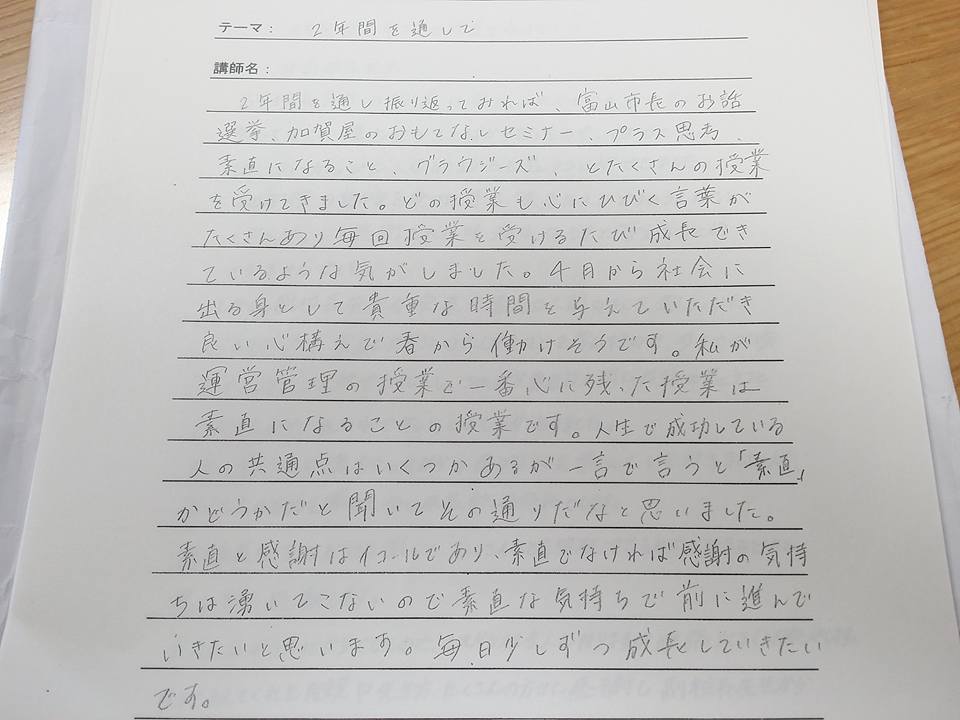 テーマ： 2年間を通して
講師名：
2年間を通し振り返ってみれば、富山市長のお話
選挙、加賀屋のおもてなしセミナー、プラス思考、
素直になること、グラウジーズ、とたくさんの授業
を受けてきました。どの授業も心にひびく言葉が
たくさんあり毎回授業を受けるたび成長でき
ているような気がしました。4月から社会に
出る身として貴重な時間を与えていただき
良い心構えで春から働けそうです。私が
運営管理の授業で一番心に残った授業は
素直になることの授業です。人生で成功している
人の共通点はいくつかあるが一言で言うと「素直」
かどうかだと聞いてその通りだなと思いました。
素直と感謝はイコールであり、素直でなければ感謝の気持
ちは湧いてこないので素直な気持ちで前に進んで
いきたいと思います。毎日少しずつ成長していきたい
です。